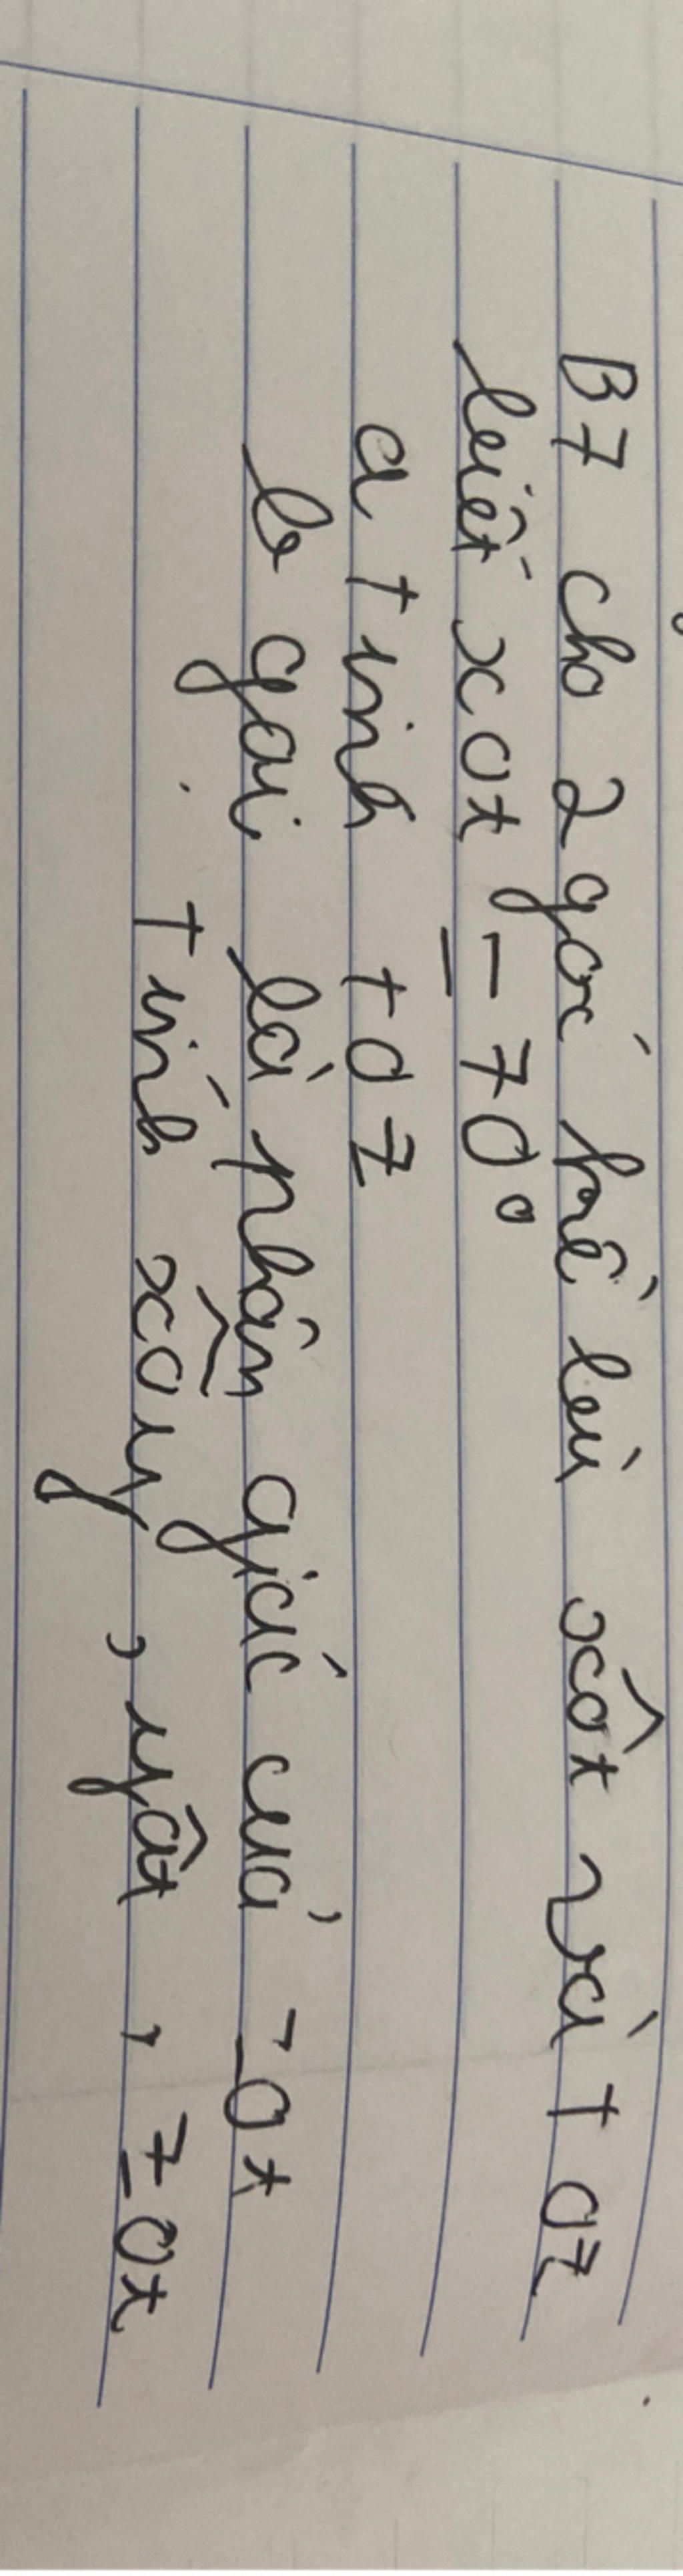 B7 cho 2 goć kề leù xôt và toz
leiết xot = 70°
a tính toz
b gọi là phân giác của zot
Tính xoy, yôt, zot